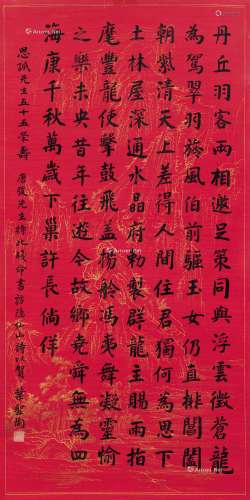 丹丘羽客兩相邀足策同興浮雲徵蒼龍
為駕翠羽葆風伯前驅玉女仍直排閶闔
朝紫清天上差得人間住君獨何為思下
土林屋深通水晶府勅製群龍主賜雨指
麾豐龍使擊鼓飛蓋揚舲馮夷舞凝靈愉
之樂未央昔年往遊今故鄉堯舜無為四
海康千秋萬歲下巢許長倘佯
先生五十五榮壽 先生持此牋命書訪隱仙山詩以賀 葉聖陶